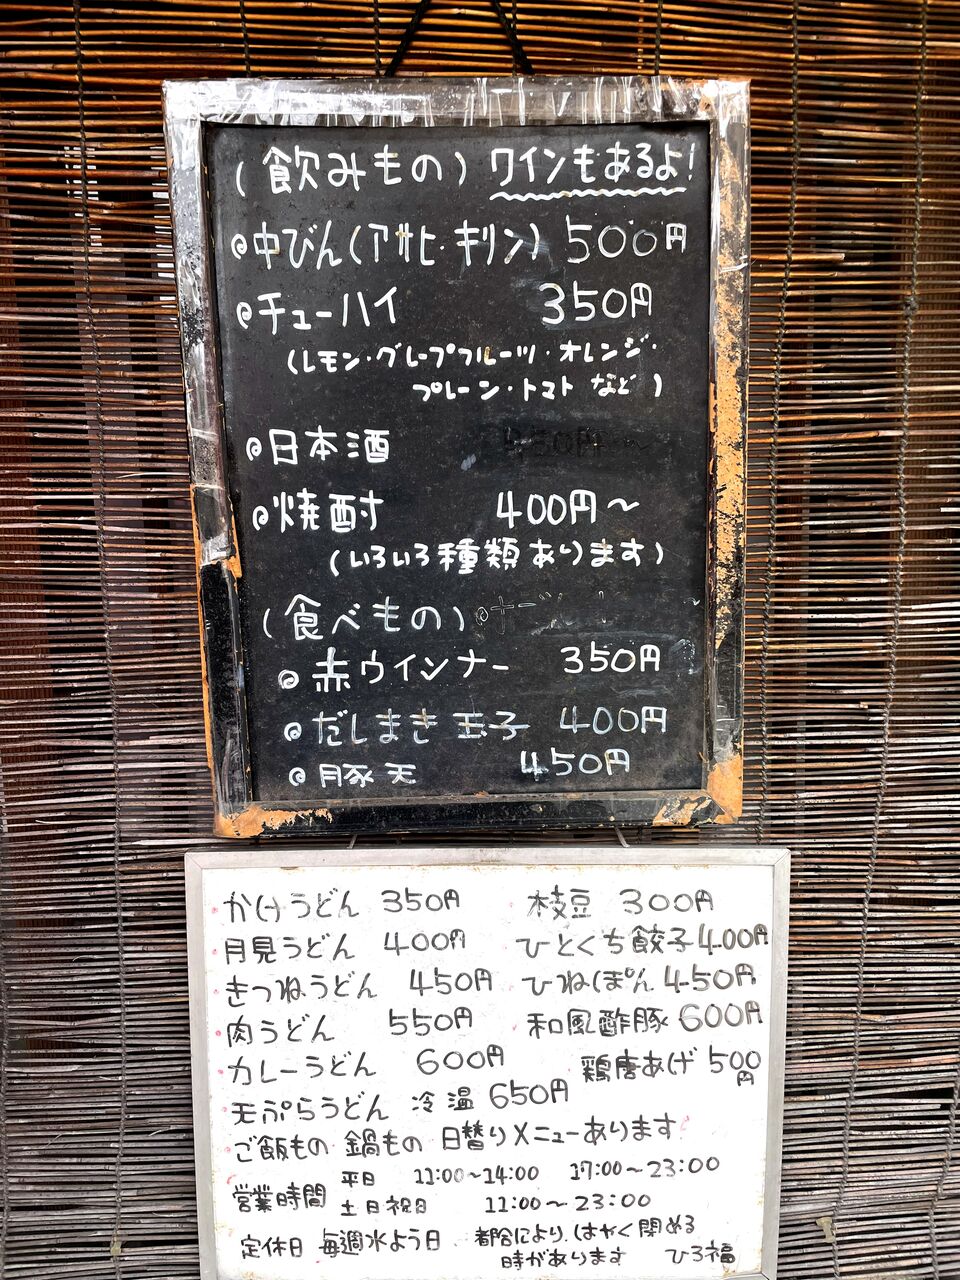 (飲みもの) ワインもあるよ!
中びん(アサヒ・キリン) 500円
チューハイ 350円
(レモン・グレープフルーツ・オレンジ・
プレーン・トマト など)
日本酒 450円~
焼酎 400円~
(いろいろ種類あります)
(食べもの)
赤ウインナー 350円
だしまき玉子 400円
豚天 450円
かけうどん 350円
月見うどん 400円
きつねうどん 450円
肉うどん 550円
カレーうどん 600円
天ぷらうどん 冷 温 650円
枝豆 300円
ひとくち餃子 400円
ひねぽん 450円
和風酢豚 600円
鶏唐あげ 500円
ご飯もの 鍋もの 日替りメニューあります
営業時間 平日 11:00~14:00 17:00~23:00
土日祝日 11:00~23:00
定休日 毎週水よう日
都合により、はやく閉める
時があります ひろ福